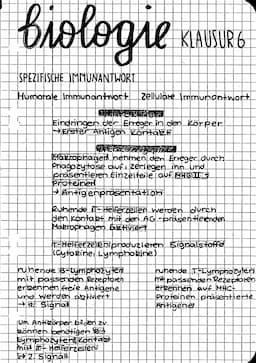 biologie KLAUSUR 6
SPEZIFISCHE IMMUNANTWORT
Humorale Immunantwort Zelluläre Immunantwort
Eindringen der Erreger in den Körper
→ Erster Antigen Kontakt
Makrophagen nehmen den Erreger durch
Phagozytose auf, zerlegen ihn und
präsentieren Einzelteile auf MHC II
Proteinen
→ Antigenpräsentation
Ruhende T-Helferzellen werden durch
den Kontakt mit den AG-präsentierenden
Makrophagen aktiviert
T-Helferzellen produzieren Signalstoffe
(Cytokine, Lymphokine)
ruhende B-Lymphozyten
mit passenden Rezeptoren
erkennen freie Antigene
und werden aktiviert
→ 1. Signal
ruhende T-Lymphozyten
mit passenden Rezeptoren
erkennen auf MHC-
Proteinen präsentierte
Antigene
um Antikörper bilden zu
können benötigen B-
Lymphozyten Kontakt
mit T-Helferzellen
→ 2. Signal